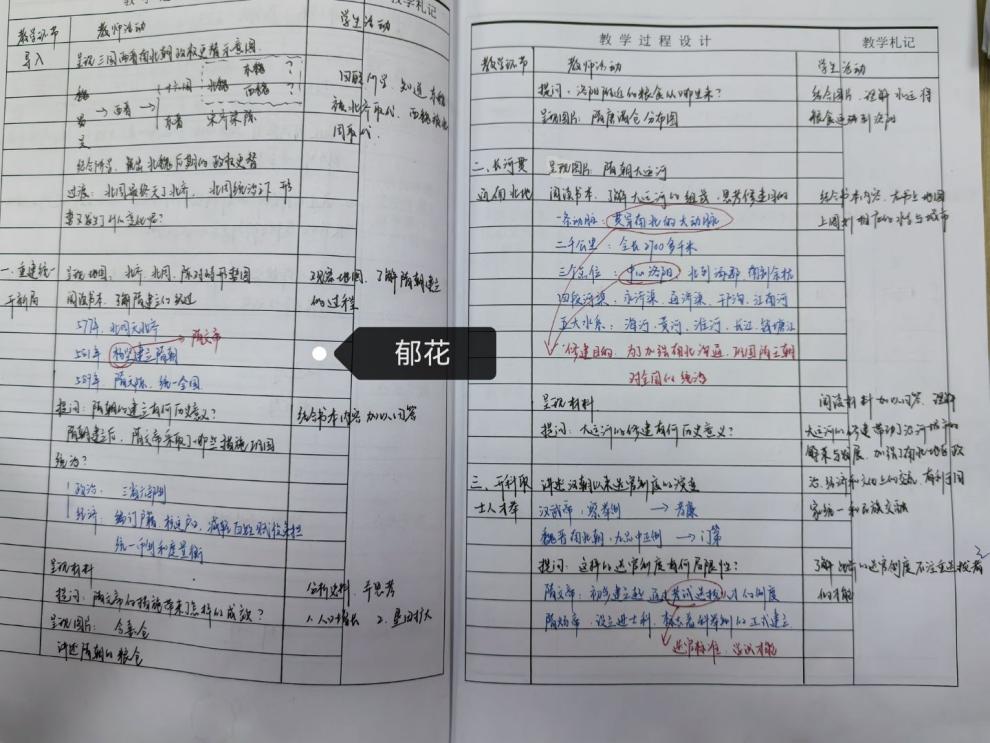 教学札记
教学环节 教师活动 学生活动
导入 呈现三国两晋南北朝政权更替示意图
东魏 ?
北魏 西魏 ?
→ 西晋 →
东晋 宋齐梁陈
吴
回答问题，知道东魏
被北齐取代，西魏被北
周取代。
结合所学，说出北魏后期的政权更替
过渡：北周灭了北齐，北周统治下，形
势又发生了什么变化呢？
一、重建统一 呈现地图，北齐、北周、陈对峙形势图
开新局 阅读书本，了解隋建立的过程
观察地图，了解隋朝建立
的过程
577年，北周灭北齐
隋文帝
581年 杨坚建立隋朝
589年 隋灭陈，统一全国
郁花
提问：隋朝的建立有何历史意义？
结合书本内容加以回答
隋朝建立后，隋文帝采取了哪些措施巩固
统治？
政治：三省六部制
经济：编订户籍，减轻百姓赋役
统一币制和度量衡
呈现材料
分析史料，并思考
提问：隋文帝的措施带来了怎样的成效？
1.人口增长 2.垦田扩大
呈现图片：含嘉仓
讲述隋朝的粮仓
教学过程设计 教学札记
教学环节 教师活动 学生活动
提问：洛阳附近的粮食从哪里来？
呈现图片：隋唐粮仓分布图
结合图片，理解水运将
粮食运输到洛阳
二、长河贯 呈现图片：隋朝大运河
通南北地 阅读书本，了解大运河的组成，思考修建目的
结合书本内容，在书上地图
上圈划相应的水系与城市
一条动脉：贯穿南北的大动脉
二千公里：全长2700多千米
三个点位：中心洛阳 北到涿郡 南到余杭
四段河渠：永济渠 通济渠 邗沟 江南河
五大水系：海河、黄河、淮河、长江、钱塘江
修建目的：为了加强南北沟通，巩固隋王朝
对全国的统治
呈现材料
提问：大运河的修建有何历史意义？
阅读材料加以回答，理解
大运河的修建带动了沿河城市的
繁荣与发展，加强了南北地区政
治、经济和文化上的交流，有利于国
家统一和民族交融
三、开科取 讲述汉朝以来选官制度的演变
士人才举 汉武帝，察举制 → 孝廉
魏晋南北朝，九品中正制 → 门第
提问：这样的选官制度有何局限性？
了解的选官制度不注重选拔者
的才能
隋文帝：初步建立起通过考试选拔人才的制度
隋炀帝，设立进士科，标志着科举制的正式建立
选官标准，学识才能